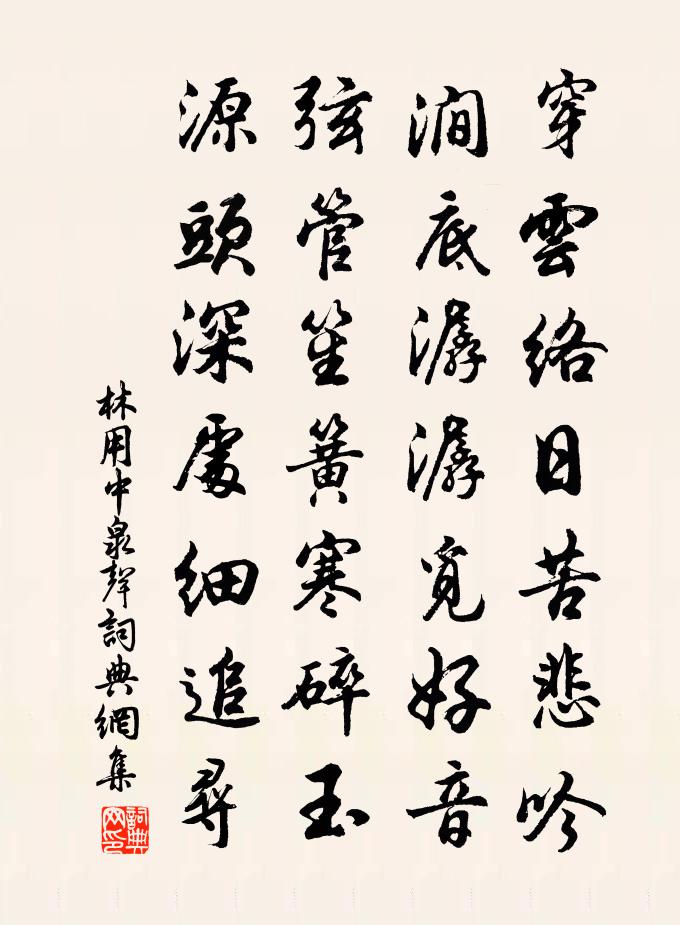 穿雲絡日苦悲吟
澗底潺潺覓好音
弦管笙簧寒碎玉
源頭深處細追尋
林用中泉聲詞典網集
詞典
网印